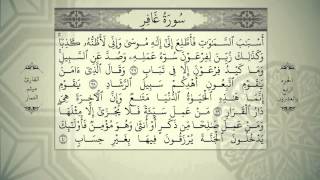 سُورَةُ غَافِر
أَسْبَٰبَ ٱلسَّمَٰوَٰتِ فَأَطَّلِعَ إِلَىٰٓ إِلَٰهِ مُوسَىٰ وَإِنِّى لَأَظُنُّهُۥ كَٰذِبًا ۚ
وَكَذَٰلِكَ زُيِّنَ لِفِرْعَوْنَ سُوٓءُ عَمَلِهِۦ وَصُدَّ عَنِ ٱلسَّبِيلِ ۚ
وَمَا كَيْدُ فِرْعَوْنَ إِلَّا فِى تَبَابٍ ٣٧ وَقَالَ ٱلَّذِىٓ ءَامَنَ
يَٰقَوْمِ ٱتَّبِعُونِ أَهْدِكُمْ سَبِيلَ ٱلرَّشَادِ ٣٨ يَٰقَوْمِ
إِنَّمَا هَٰذِهِ ٱلْحَيَوٰةُ ٱلدُّنْيَا مَتَٰعٌ وَإِنَّ ٱلْءَاخِرَةَ هِىَ
دَارُ ٱلْقَرَارِ ٣٩ مَنْ عَمِلَ سَيِّئَةً فَلَا يُجْزَىٰٓ إِلَّا مِثْلَهَا ۖ
وَمَنْ عَمِلَ صَٰلِحًا مِّن ذَكَرٍ أَوْ أُنثَىٰ وَهُوَ مُؤْمِنٌ فَأُو۟لَٰٓئِكَ
يَدْخُلُونَ ٱلْجَنَّةَ يُرْزَقُونَ فِيهَا بِغَيْرِ حِسَابٍ ٤٠
الجزء
الرابع
والعشرون
القارئ
ميثم
التمار